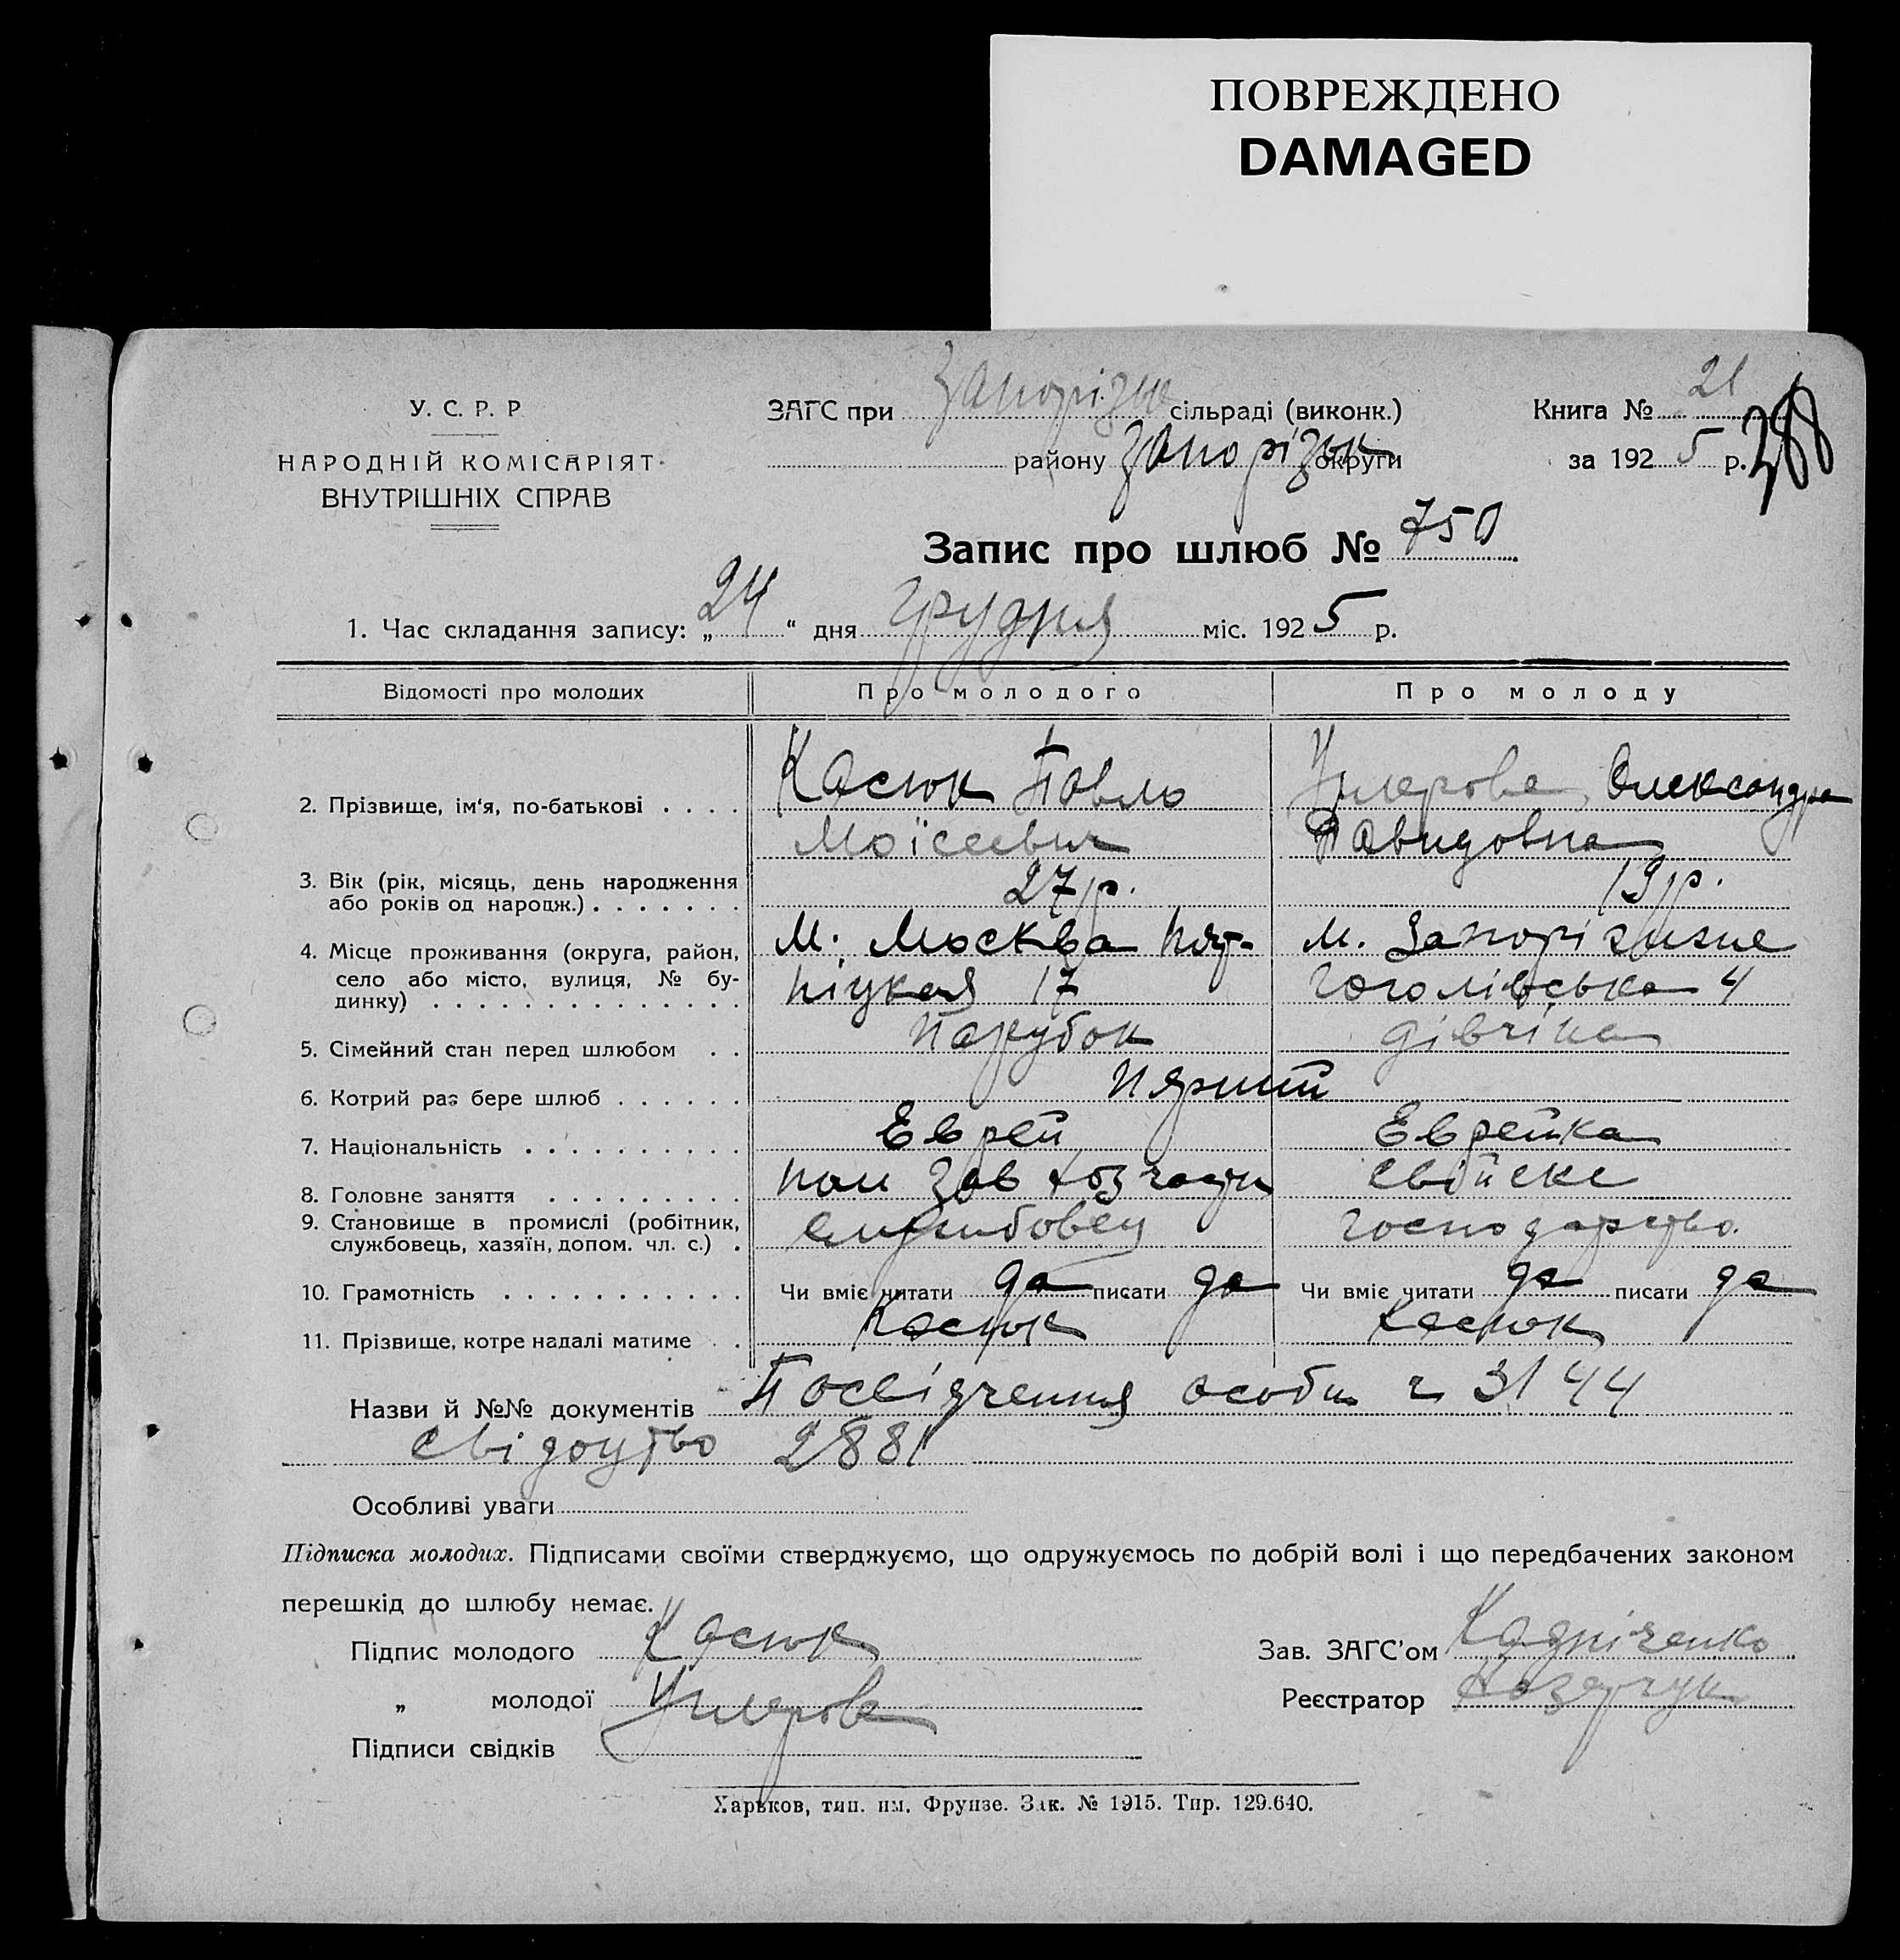 ПОВРЕЖДЕНО
DAMAGED
У. С. Р. Р
НАРОДНІЙ КОМІСАРІЯТ
ВНУТРІШНІХ СПРАВ
ЗАГС при Запорізьк сільраді (виконк.)
району Запорізьк округи
Книга № 21
за 1925 р. 388
Запис про шлюб № 750
1. Час складання запису: „24“ дня грудня міс. 1925 р.
Відомості про молодих Про молодого Про молоду
2. Прізвище, ім'я, по-батькові . . . . Касюк Павло Олександра
Моїсеевич Давидовна
3. Вік (рік, місяць, день народження 27 р. 19 р.
або років од народж.) . . . . . . .
4. Місце проживання (округа, район, м. Москва Пят- м. Запоріжже
село або місто, вулиця, № бу- ніцкая 17 Гоголівська 4
динку) . . . . . . . . . . . . . .
5. Сімейний стан перед шлюбом . . Парубок дівчіна
6. Котрий раз бере шлюб . . . . . . Перший
7. Національність . . . . . . . . . . Еврей Еврейка
8. Головне заняття . . . . . . . . . пом зав хозчасти свійске
9. Становище в промислі (робітник, службовец господарство.
службовець, хазяїн, допом. чл. с.) .
10. Грамотність . . . . . . . . . . . Чи вміє читати да писати да Чи вміє читати да писати да
11. Прізвище, котре надалі матиме . . Касюк Касюк
Назви й №№ документів Посвідчення особи ч 3144
свідоцтво 2881
Особливі уваги
Підписка молодих. Підписами своїми стверджуємо, що одружуємось по добрій волі і що передбачених законом
перешкід до шлюбу немає.
Підпис молодого Касюк Зав. ЗАГС'ом
„ молодої Реєстратор
Підписи свідків
Харьков, тип. им. Фрунзе. Зак. № 1915. Тир. 129.640.